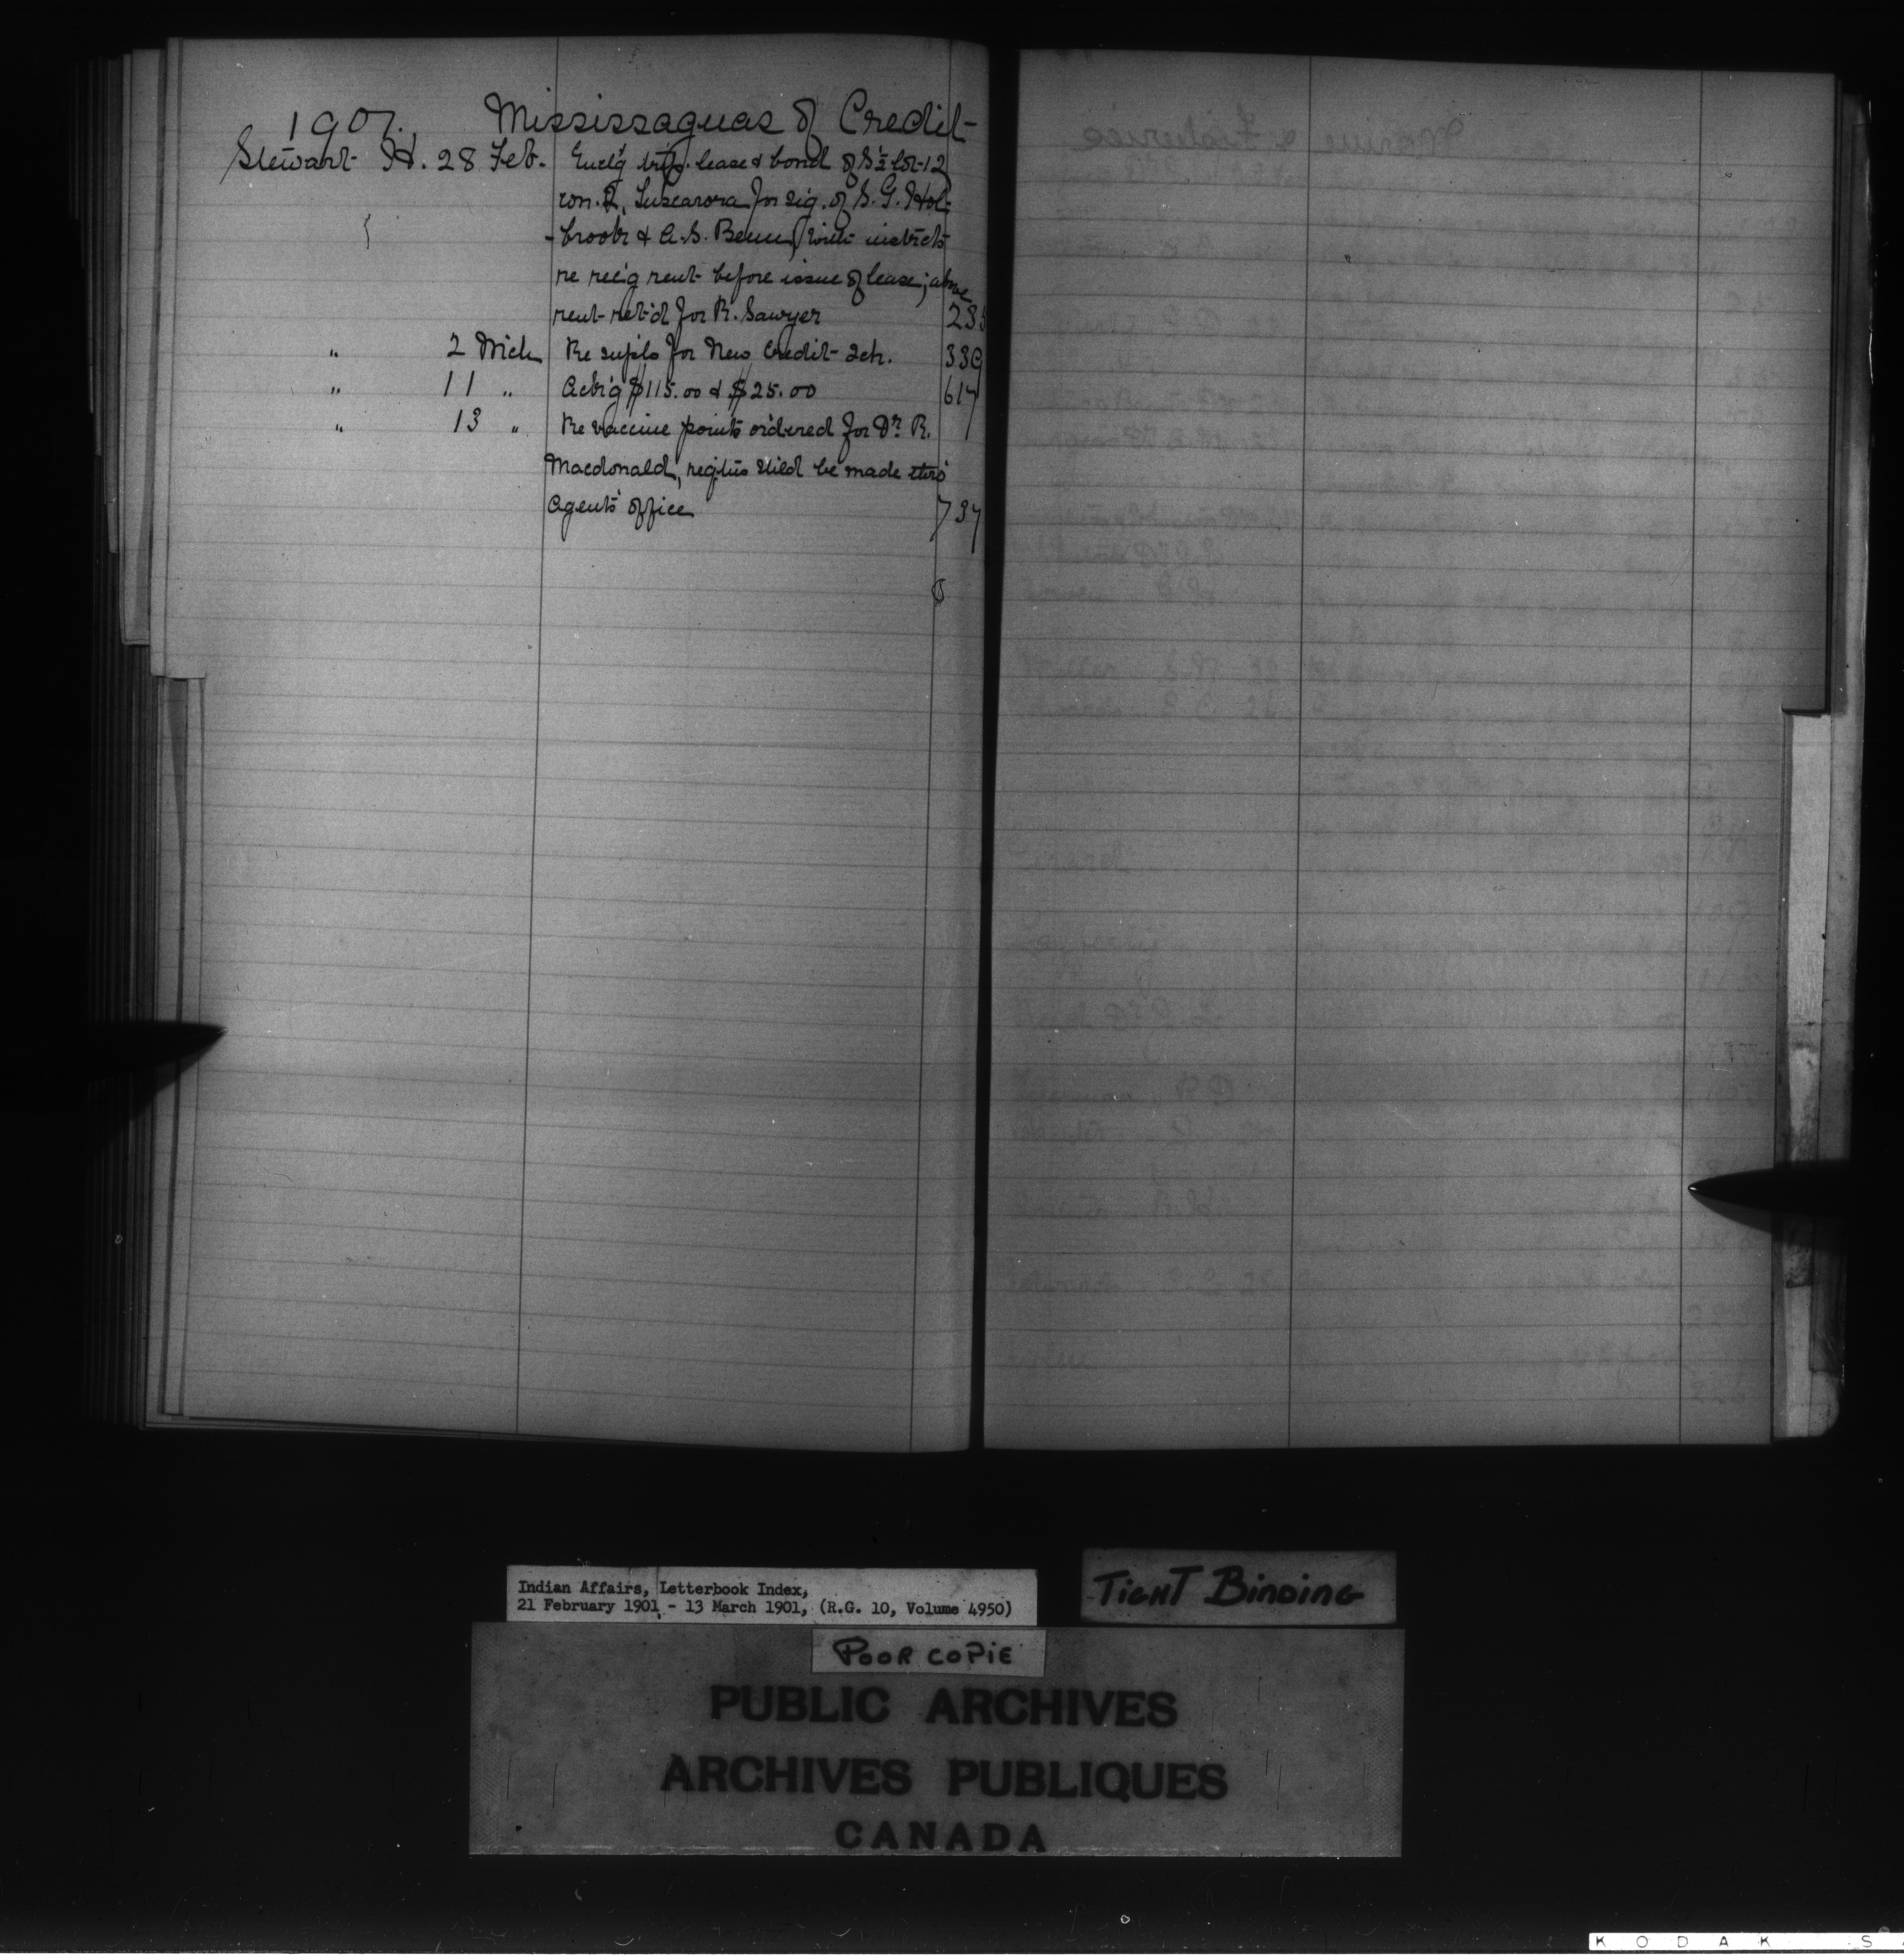 1901. Mississaguas of Credit
Stewart H. 28 Feb. Encl'g trip. lease & bond of S½ lot 12
con. 2, Tuscarora for sig. of S. G. Hol-
-brook & A. S. Benn, with instrcts
re rec'g rent before issue of lease; above
rent ret'd for R. Sawyer 235
" 2 Mch Re supls for New Credit Sch. 339
" 11 " Ack'g $115.00 & $25.00 617
" 13 " Re vaccine points ordered for Dr. R.
Macdonald, req'tns shld be made thro'
Agent's office 737
Indian Affairs, Letterbook Index,
21 February 1901 - 13 March 1901, (R.G. 10, Volume 4950)
TIGHT BINDING
POOR COPIE
PUBLIC ARCHIVES
ARCHIVES PUBLIQUES
CANADA
KODAK S